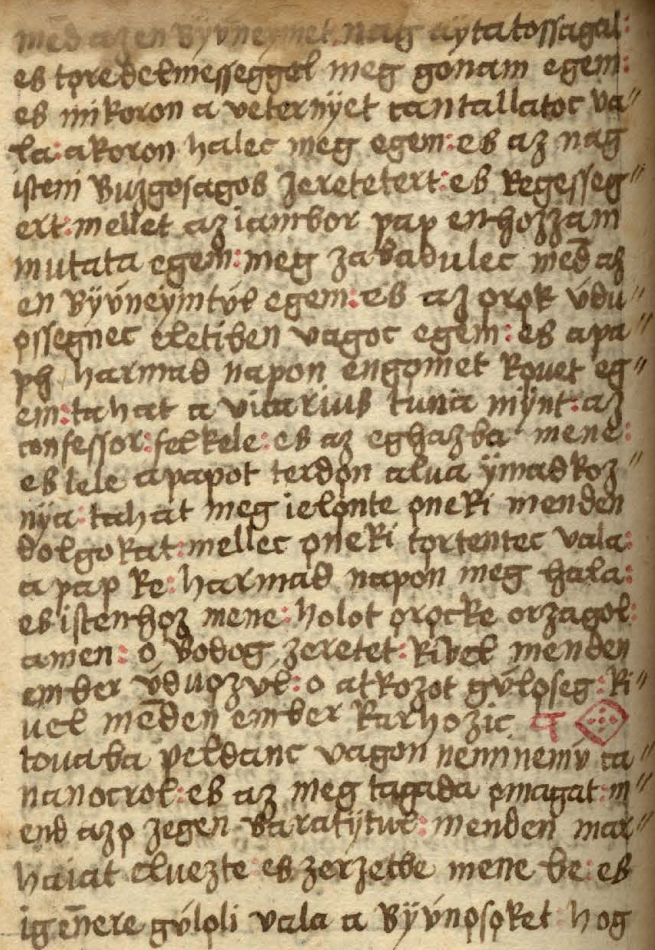 med azen bẏv̇neẏmet nag aẏtatossagal:
es tqredelmesseggel meg gonam egem:
es mikoron a veternẏet cantallatoc va〃
la: akoron halec meg egem: es az nag
isteni buzgosagos zeretetert: es kegesseg〃
ert: mellet az iambor pap enhozzam
mutata egem: meg zabadulec mēd az
en bẏv̇neẏmtv̇l egem: es az qrqk v̇du〃
qssegnec eletiben vagoc egem: es a pa〃
ph harmad napon engqmet kqvet eg〃
em: tahat a vicarius tuna mẏnt: az
confessor: felkele: es az eghazba mene:
es lele a papot terdqn alua ẏmadkoz〃
nẏa: tahat meg ielqnte qneki menden
dolgokat: mellec qneki tqrtentec vala:
a pap ke: harmad napon meg hala:
es istenhqz mene: holot qrqcke orzagol:
amen: o bodog zeretet: kivel menden
ember v̇dvqzv̇l: o atkozot gv̇lqseg: ki〃
uel mēden ember karhozic ¶
touaba peldanc vagon nemnemv ta〃
nanocrol: es az meg tagada qmagat: m〃
end azq zegen baratẏtul: menden mar〃
haiat eluezte es zerzetbe mene be: es
igēnere gv̇lqli vala a bẏv̇nqsqket hog